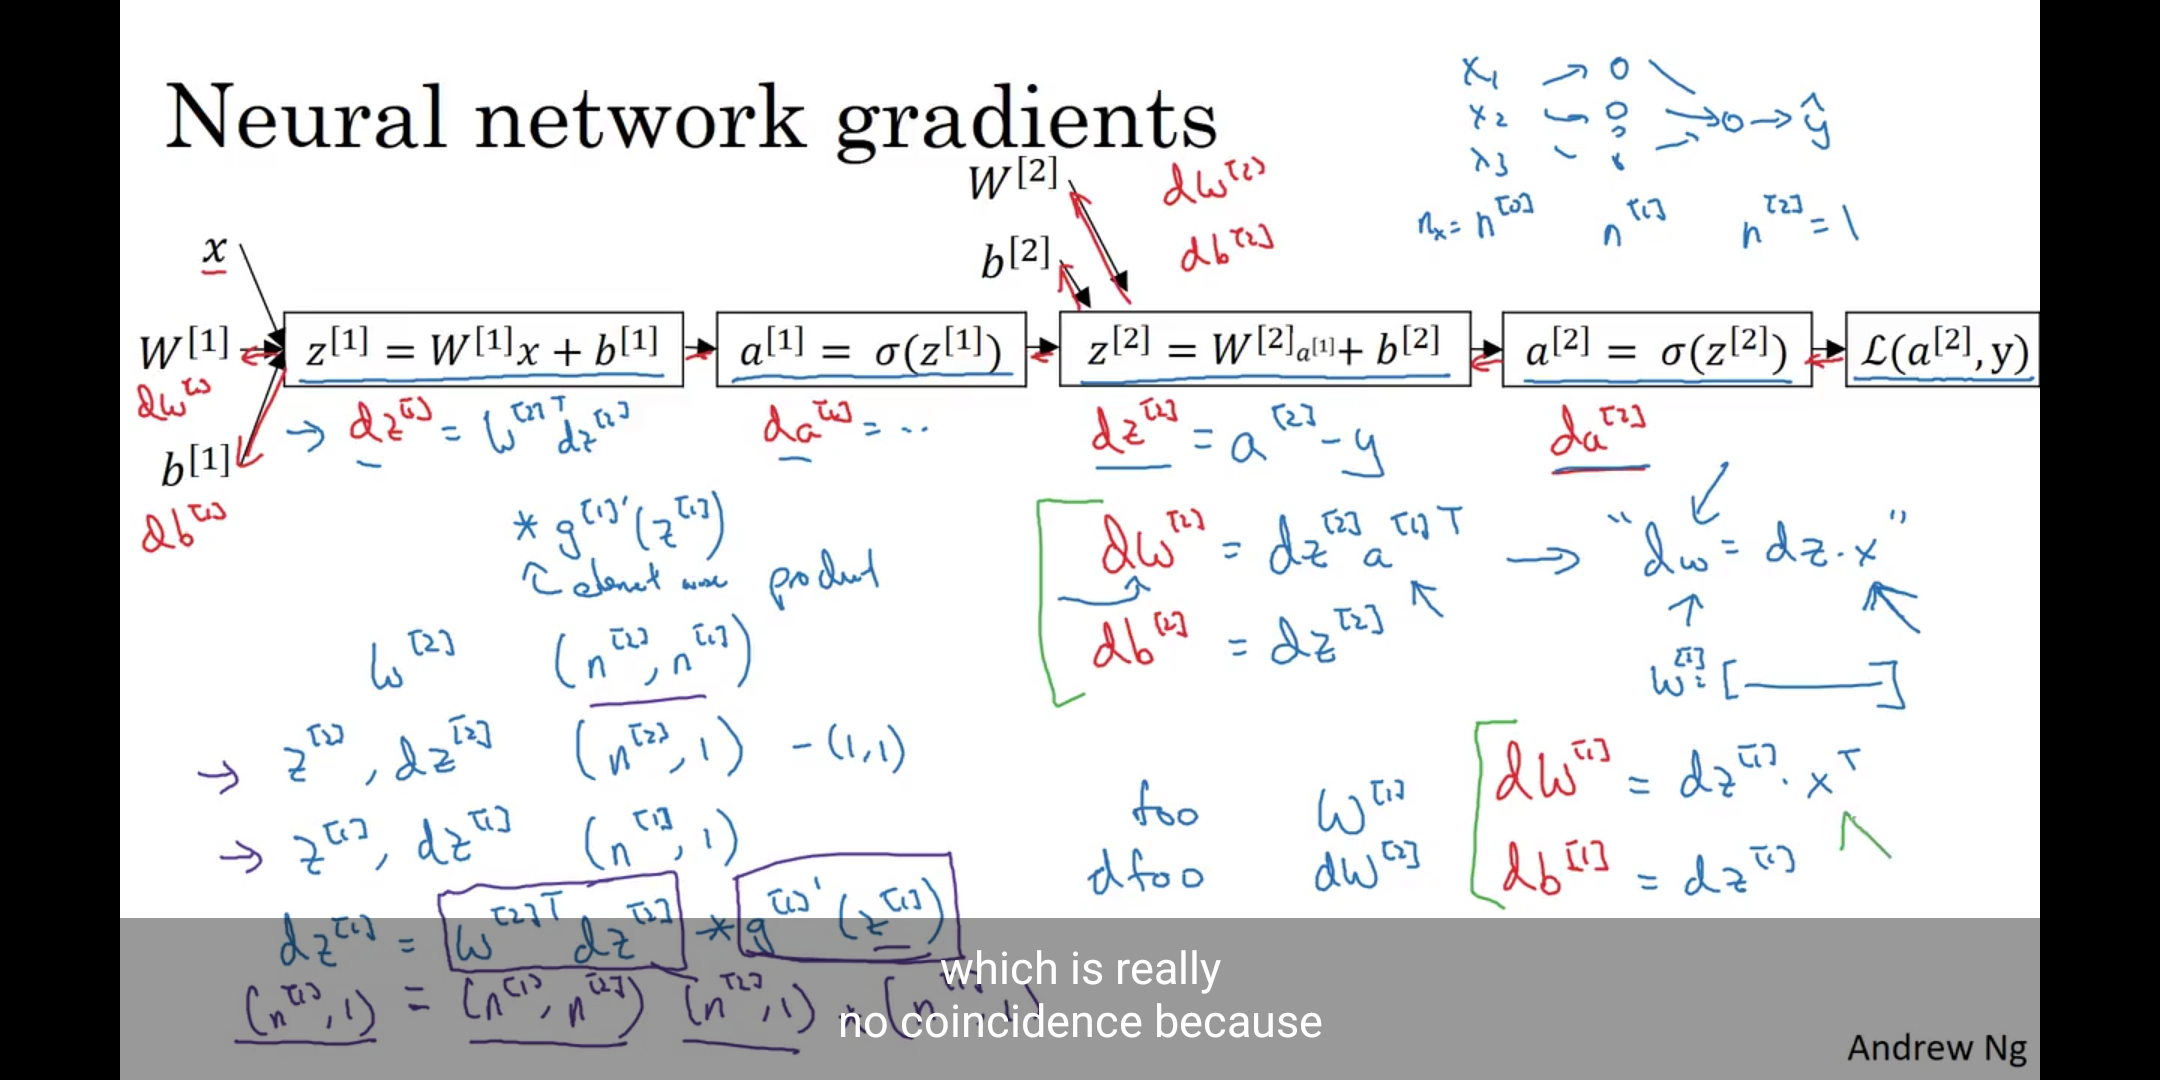 Neural network gradients
x₁ x₂ x₃ ŷ
nₓ = n^[0] n^[1] n^[2] = 1
W^[2] dw^[2]
b^[2] db^[2]
x
W^[1] z^[1] = W^[1]x + b^[1] a^[1] = σ(z^[1]) z^[2] = W^[2]a^[1] + b^[2] a^[2] = σ(z^[2]) ℒ(a^[2], y)
dw^[1]
b^[1]
db^[1]
→ dz^[1] = W^[2]T dz^[2] da^[1] = .. dz^[2] = a^[2] - y da^[2]
* g^[1]'(z^[1])
↑ element wise product
dw^[2] = dz^[2] a^[1]T → "dw = dz · x"
db^[2] = dz^[2]
w^[1]: [——]
w^[2] (n^[2], n^[1])
→ z^[2], dz^[2] (n^[2], 1) - (1,1)
→ z^[1], dz^[1] (n^[1], 1)
foo W^[1]
dfoo dW^[2]
dW^[1] = dz^[1] · x^T
db^[1] = dz^[1]
dz^[1] = W^[2]T dz^[2] * g^[1]'(z^[1])
(n^[1], 1) = (n^[1], n^[2]) (n^[2], 1) * (n^[1], 1)
which is really
no coincidence because
Andrew Ng